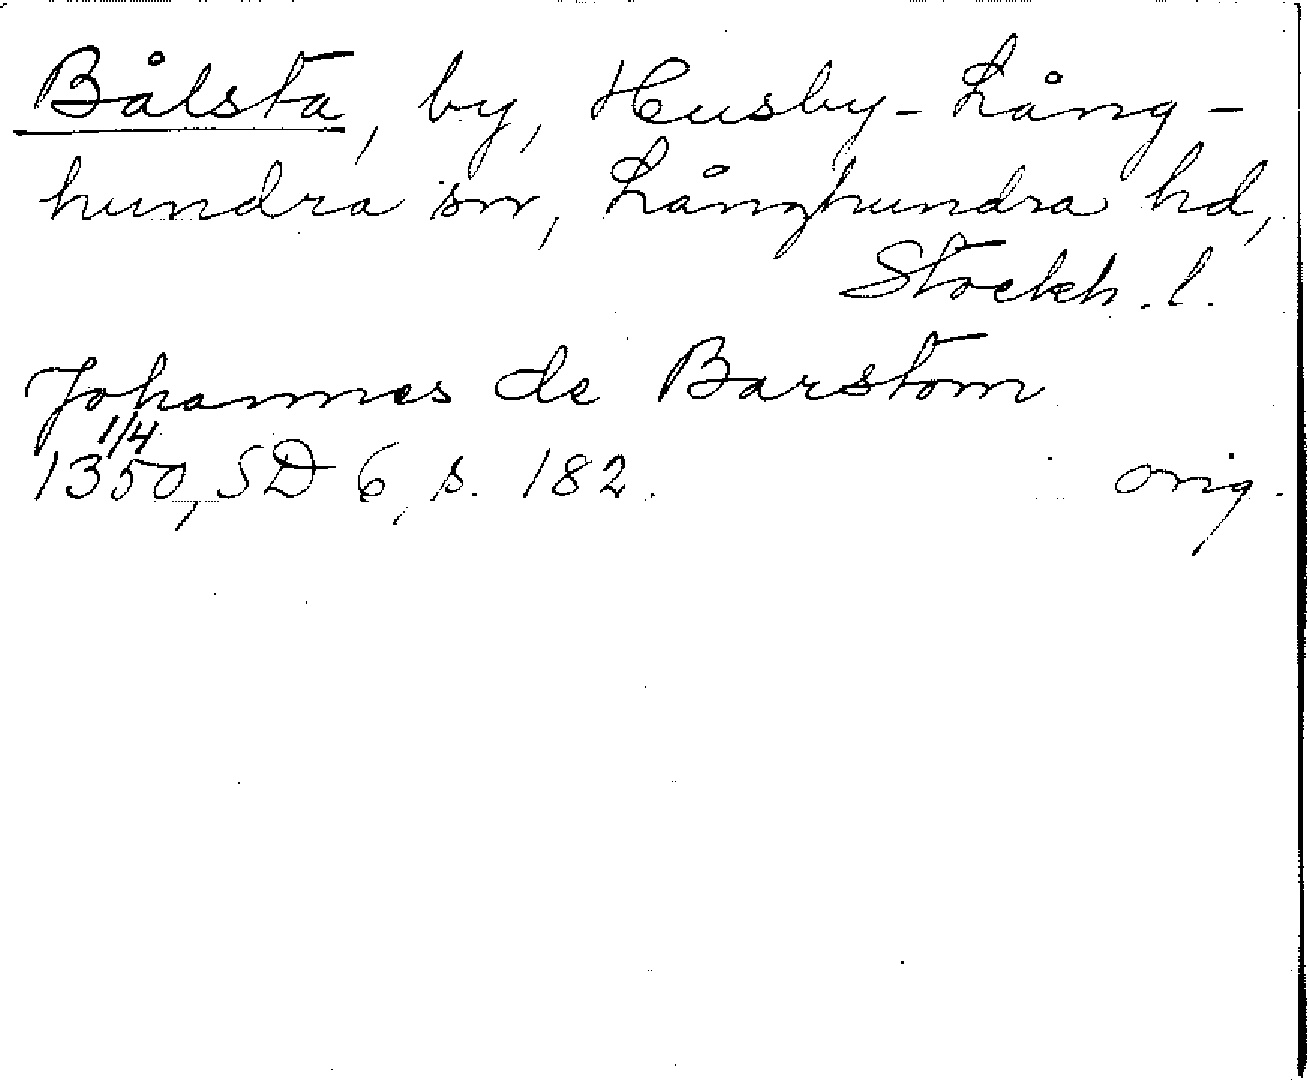 Bålsta, by, Husby-Lång-
hundra sn, Långhundra hd,
Stockh. l.
Johannes de Barstom
1/4
1350, SD 6, s. 182. orig.